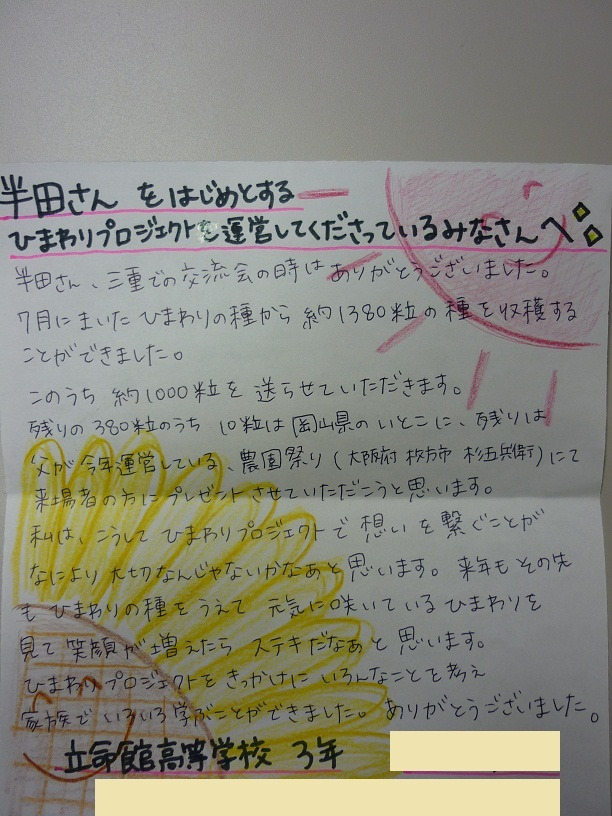 半田さん をはじめとする
ひまわりプロジェクトを運営してくださっているみなさんへ
半田さん、三重での交流会の時は ありがとうございました。
7月にまいた ひまわりの種から 約1380粒の種を収穫する
ことができました。
このうち 約1000粒を 送らせていただきます。
残りの380粒のうち 10粒は 岡山県のいとこに、残りは
父が今年運営している、農園祭り(大阪府 枚方市 杉五兵衛)にて
来場者の方にプレゼントさせていただこうと思います。
私は、こうして ひまわりプロジェクトで 想いを繋ぐことが
なにより 大切なんじゃないかなあと思います。来年もその先
も ひまわりの種をうえて 元気に咲いているひまわりを
見て 笑顔が増えたら ステキだなぁと 思います。
ひまわりプロジェクトをきっかけに いろんなことを考え
家族で いろいろ学ぶことができました。ありがとうございました。
立命館高等学校 3年